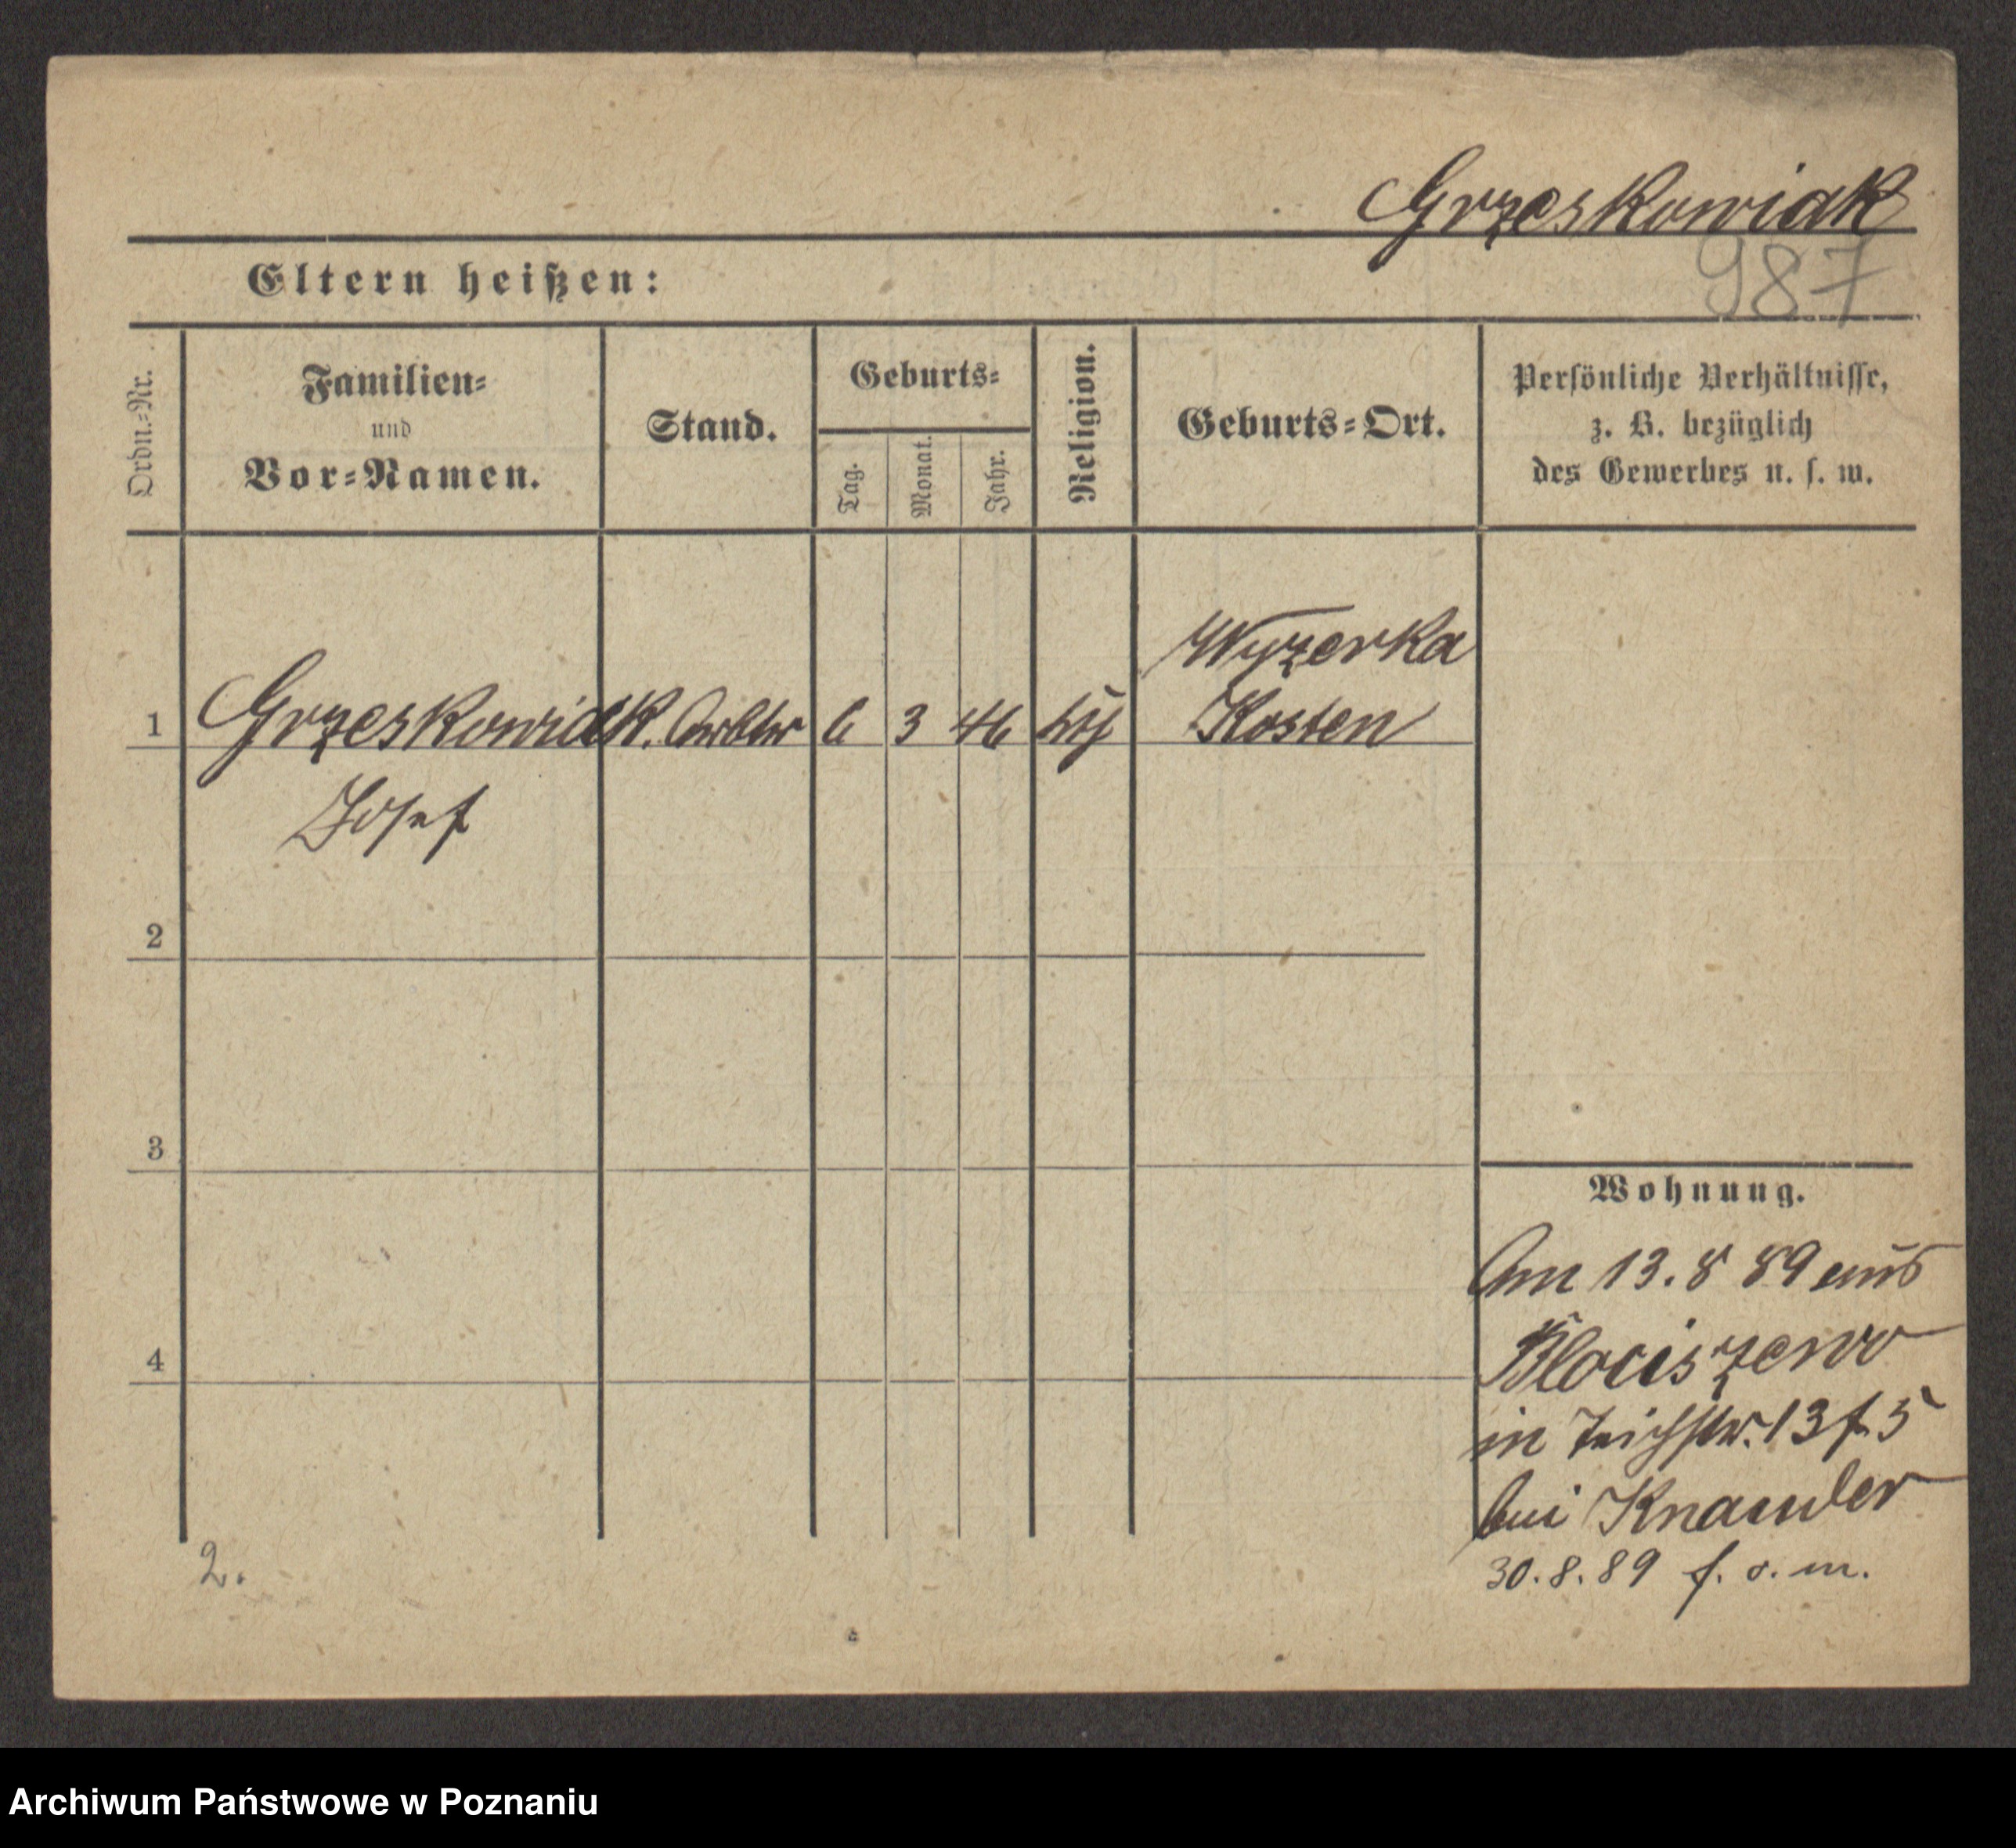 Grzeskowiak
987
Eltern heißen:
Ordn.-Nr.
Familien-
und
Vor-Namen.
Stand.
Geburts-
Tag.
Monat.
Jahr.
Religion.
Geburts-Ort.
Persönliche Verhältnisse,
z. B. bezüglich
des Gewerbes u. s. w.
1
Grzeskowiak. Arbtr 6 3 46
Wyzerka
Kosten
Josef
2
3
4
Wohnung.
Am 13.8 89 aus
Blociszewo
in Teichstr. 13 f. 5
bei Knauder
30.8.89 f. o. m.
2.
Archiwum Państwowe w Poznaniu